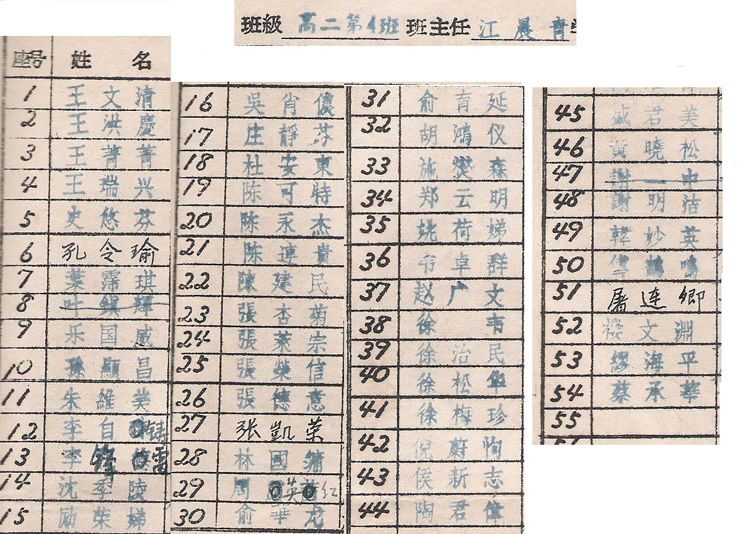 班級 高二第4班 班主任 江晨青
座号 姓 名
1 王文清
2 王洪慶
3 王菁菁
4 王瑞兴
5 史悠芬
6 孔令瑜
7 葉霈琪
8 叶鎮輝
9 乐国威
10 孫顯昌
11 朱維美
12 李自
13 李鋒
14 沈季陵
15 励荣娣
16 吳肖儂
17 庄靜芬
18 杜安東
19 陈可特
20 陈永杰
21 陈連貴
22 陳建民
23 張杏菊
24 張萊宗
25 張榮信
26 張德意
27 张凱荣
28 林國鏞
29 周英红
30 俞華龙
31 俞育延
32 胡鴻仪
33 施燮森
34 郑云明
35 姚荷娣
36 卓群
37 赵广文
38 徐韦
39 徐治民
40 徐松华
41 徐梅珍
42 倪蔚恂
43 侯新志
44 陶君偉
45 盛若美
46 黃曉松
47 謝一中
48 謝明洁
49 韓妙英
50 鳴
51 屠连卿
52 文淵
53 繆海平
54 蔡承華
55